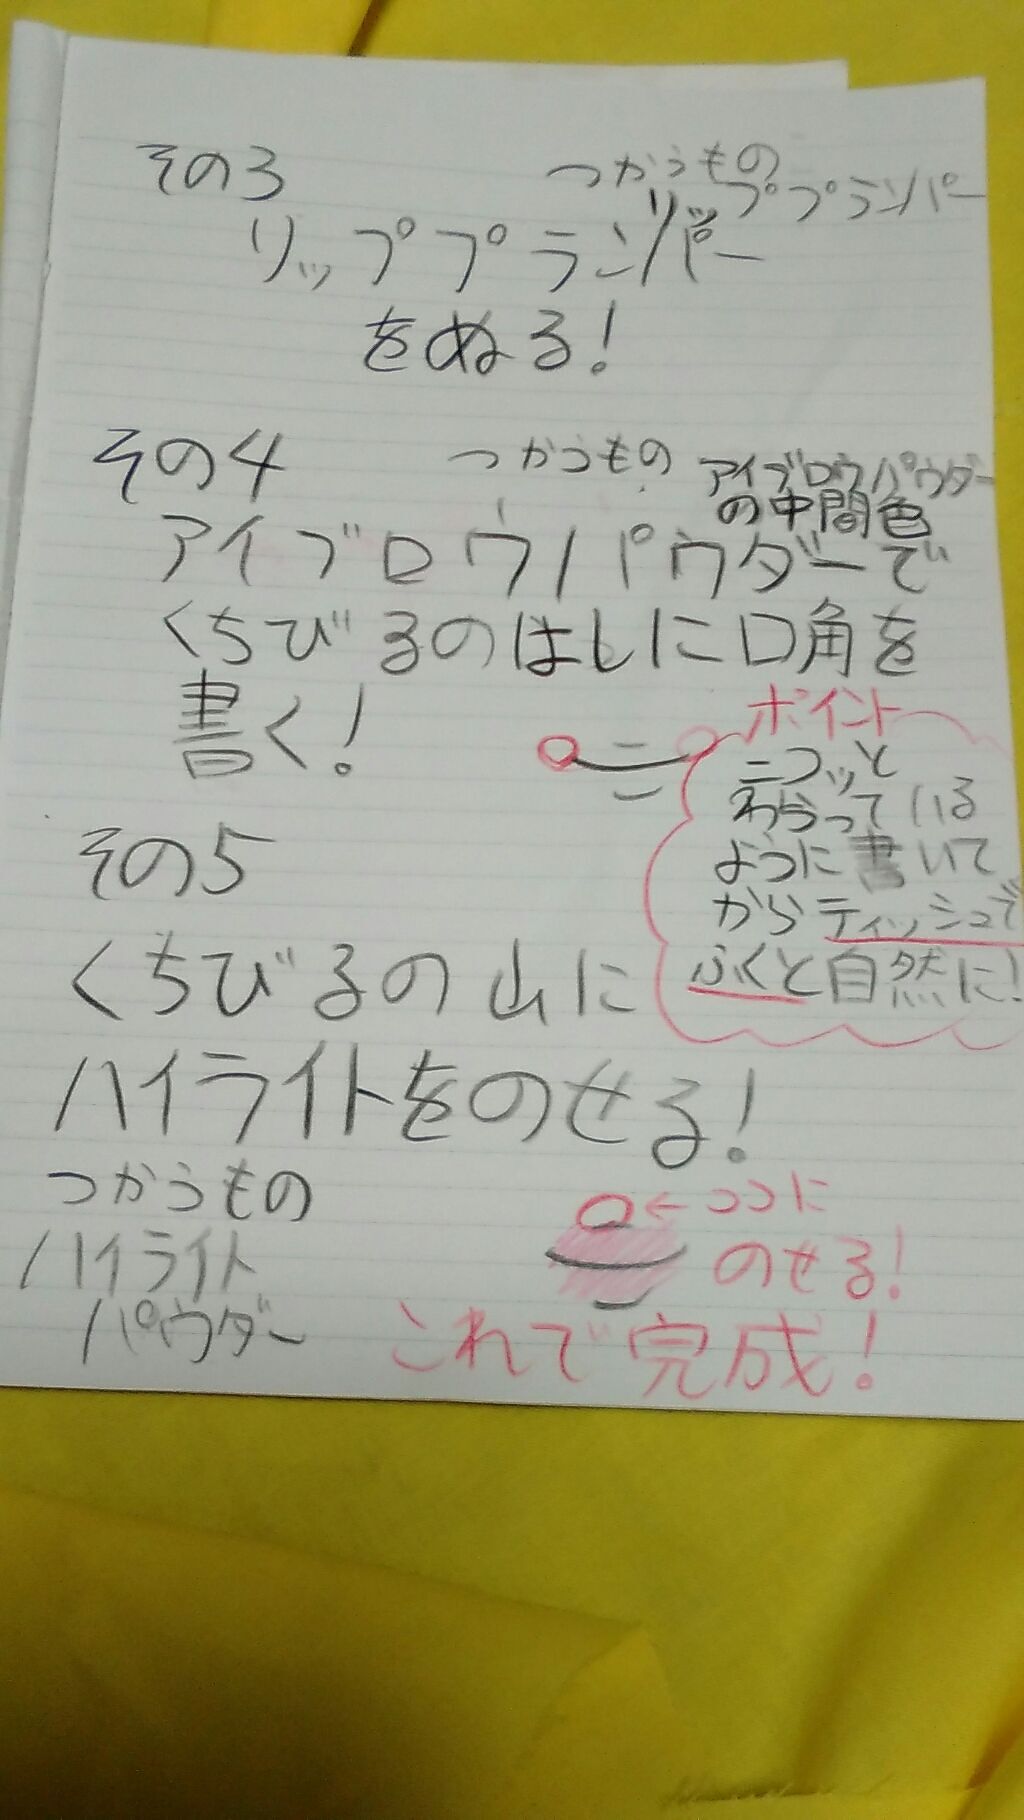 その3
つかうもの
リッププランパー
リッププランパー
をぬる!
その4
つかうもの
アイブロウパウダー
の中間色
アイブロウパウダーで
くちびるのはしに口角を
書く!
ポイント
ニコッと
わらっている
ように書いて
からティッシュで
ふくと自然に!
その5
くちびるの山に
ハイライトをのせる!
つかうもの
ハイライト
パウダー
←ココに
のせる!
これで完成!